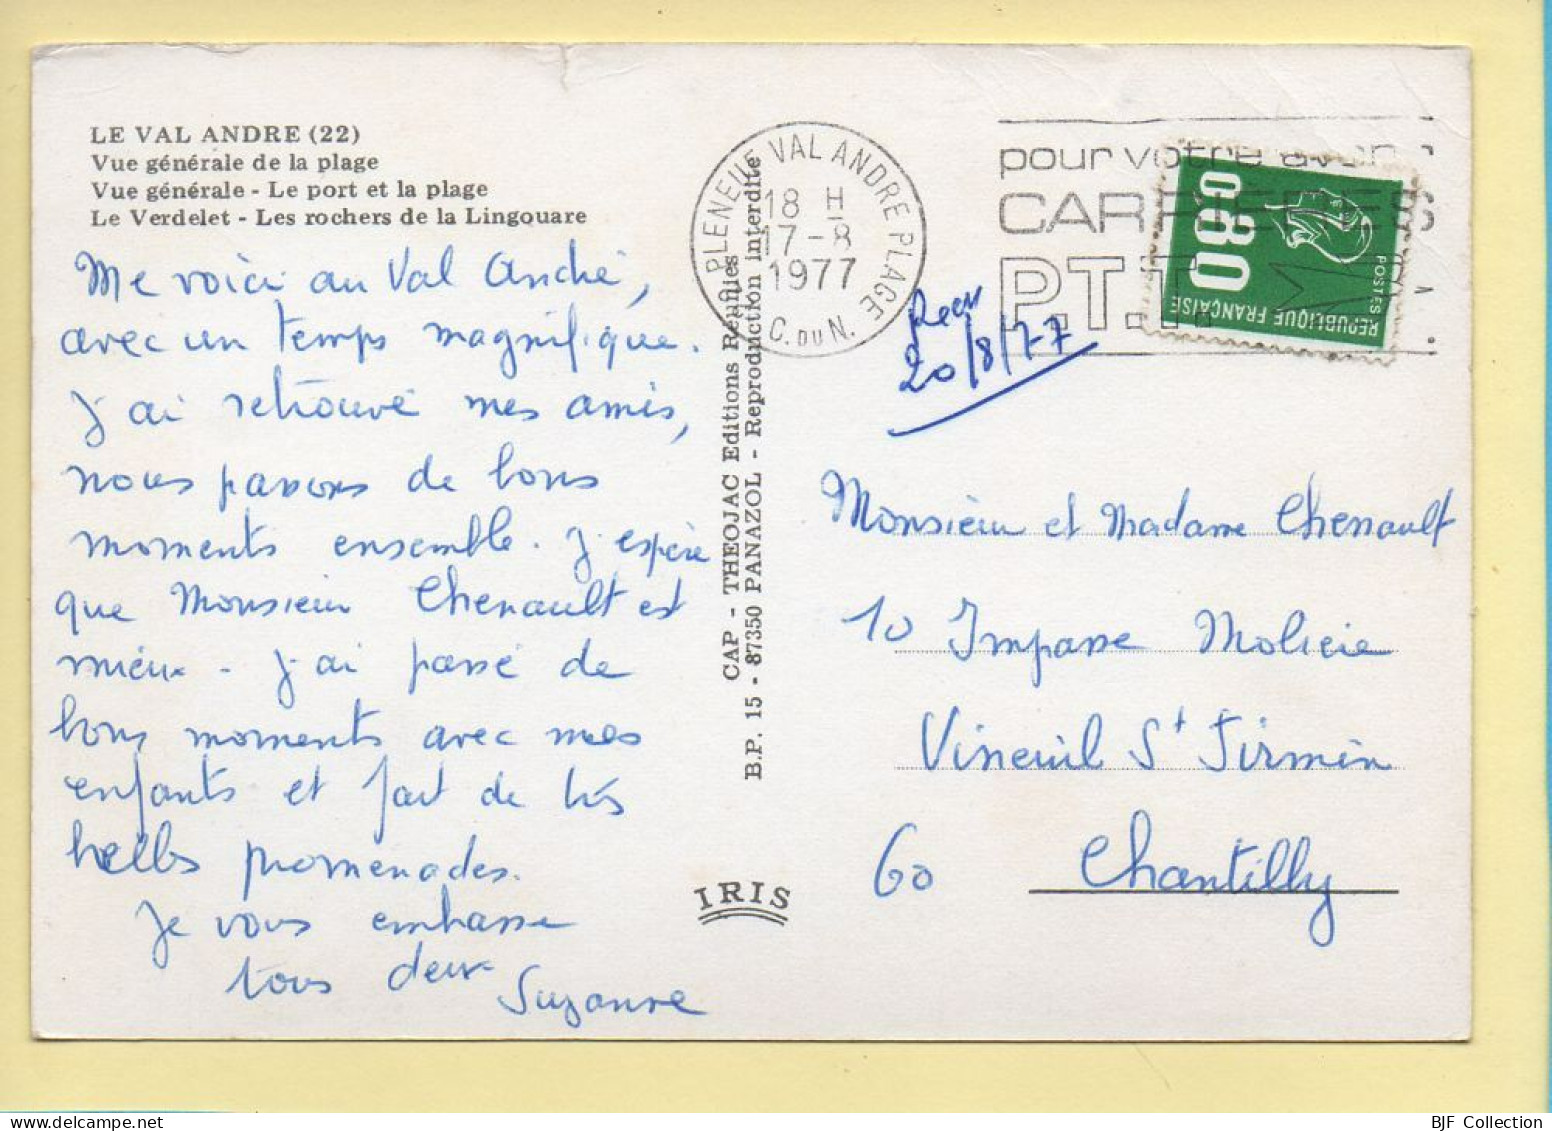 LE VAL ANDRE (22)
Vue générale de la plage
Vue générale - Le port et la plage
Le Verdelet - Les rochers de la Lingouare
Me voici au Val André,
avec un temps magnifique.
J'ai retrouvé mes amis,
nous passons de bons
moments ensemble. J'espère
que Monsieur Chenault est
mieux. J'ai passé de
bons moments avec mes
enfants et fait de très
belles promenades.
Je vous embrasse
tous deux
Suzanne
CAP - THEOJAC Editions Réunies
B.P. 15 - 87350 PANAZOL - Reproduction interdite
IRIS
PLENEUF VAL ANDRE PLAGE
18 H
17-8
1977
C. DU N.
pour votre
CARRIERES
P.T.T.
0.80
POSTES
REPUBLIQUE FRANÇAISE
Reçu
20/8/77
Monsieur et Madame Chenault
10 Impasse Molière
Vineuil St Firmin
60 Chantilly
BJF Collection